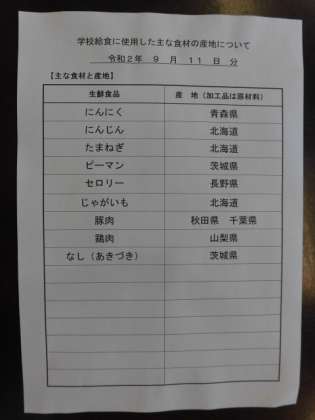 学校給食に使用した主な食材の産地について
令和２年 ９ 月 １１ 日 分
【主な食材と産地】
生鮮食品 産 地（加工品は原材料）
にんにく 青森県
にんじん 北海道
たまねぎ 北海道
ピーマン 茨城県
セロリー 長野県
じゃがいも 北海道
豚肉 秋田県 千葉県
鶏肉 山梨県
なし（あきづき） 茨城県